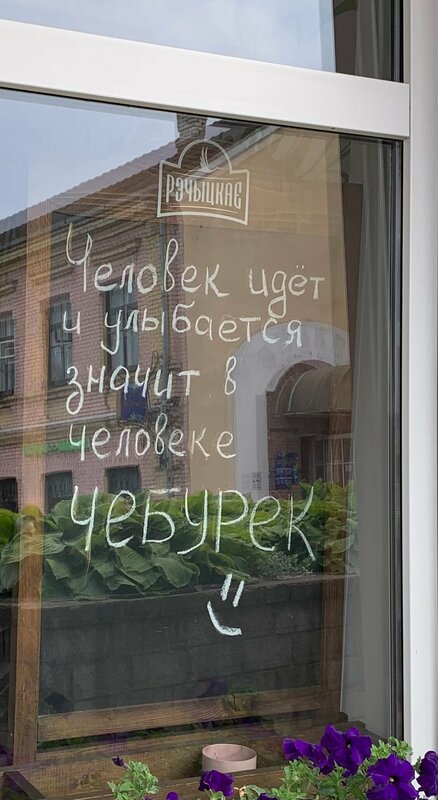 РЭЧЫЦКАЕ
Человек идёт
и улыбается
значит в
человеке
ЧЕБУРЕК